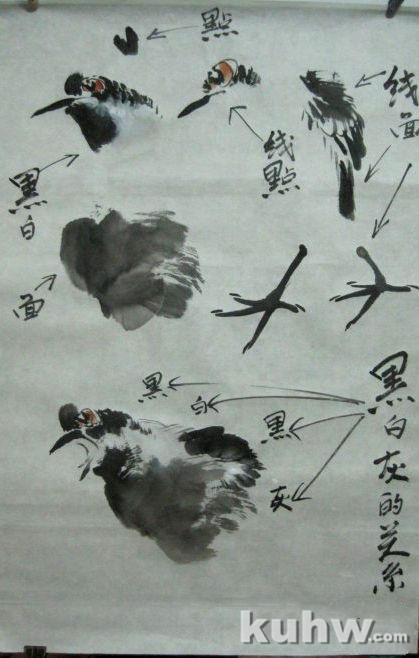 點
线面
线點
黑白
面
黑
白
黑
灰
黑白灰的关系
kuhw.com